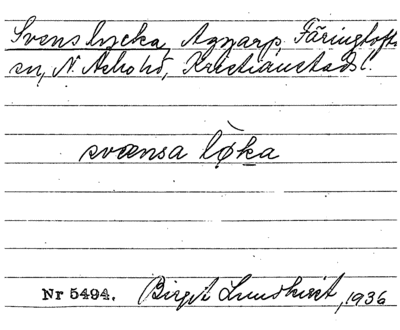 Svenslycka, Agnarp, Färingtofta
sn, N. Åsbo hd, Kristianstads l.
svænsa lø̀ka
Nr 5494. Birgit Lundkvist, 1936